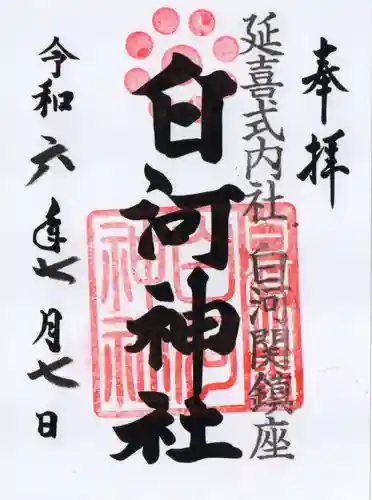 奉拝
延喜式内社 白河関鎮座
白河神社
令和六年七月七日
白河神社